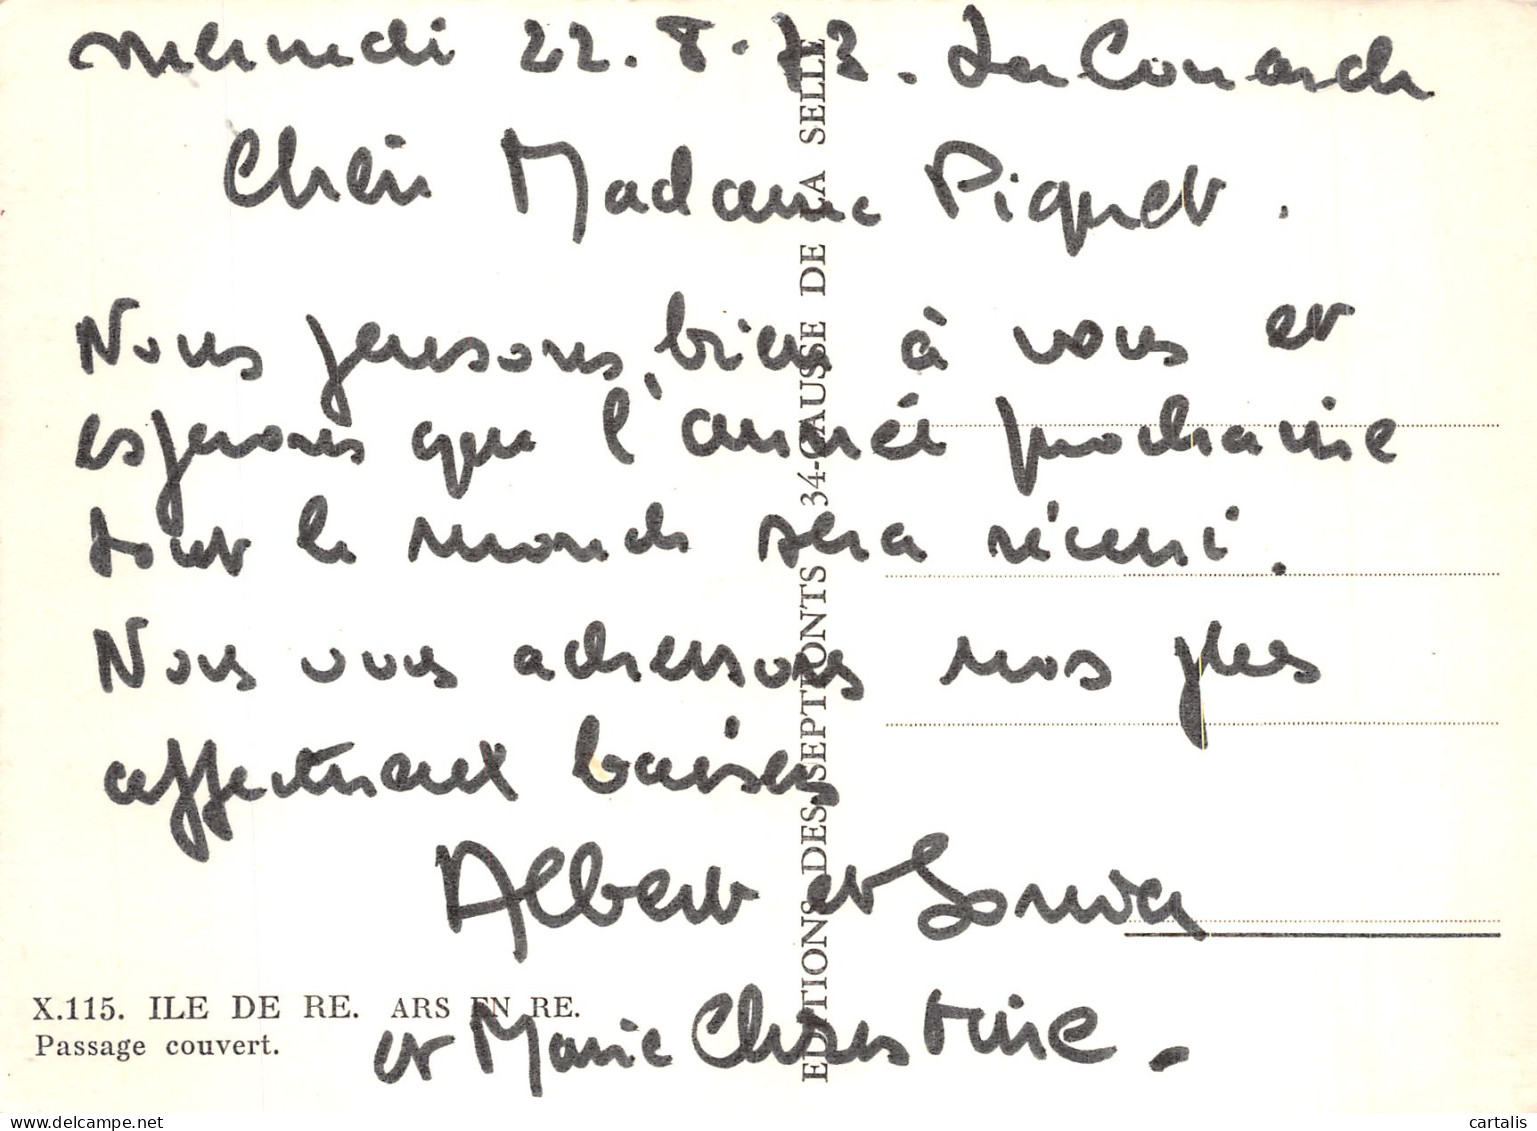 Mercredi 22.8.73. La Couarde
Chère Madame Piquet.
Nous pensons bien à vous et
espérons que l'année prochaine
tout le monde sera réuni.
Nous vous adressons nos plus
affectueux baisers
Albert et
et Marie Christine.
X.115. ILE DE RE. ARS EN RE.
Passage couvert.
EDITIONS DES SEPT PONTS 34-CAUSSE DE LA SELLE
cartalis